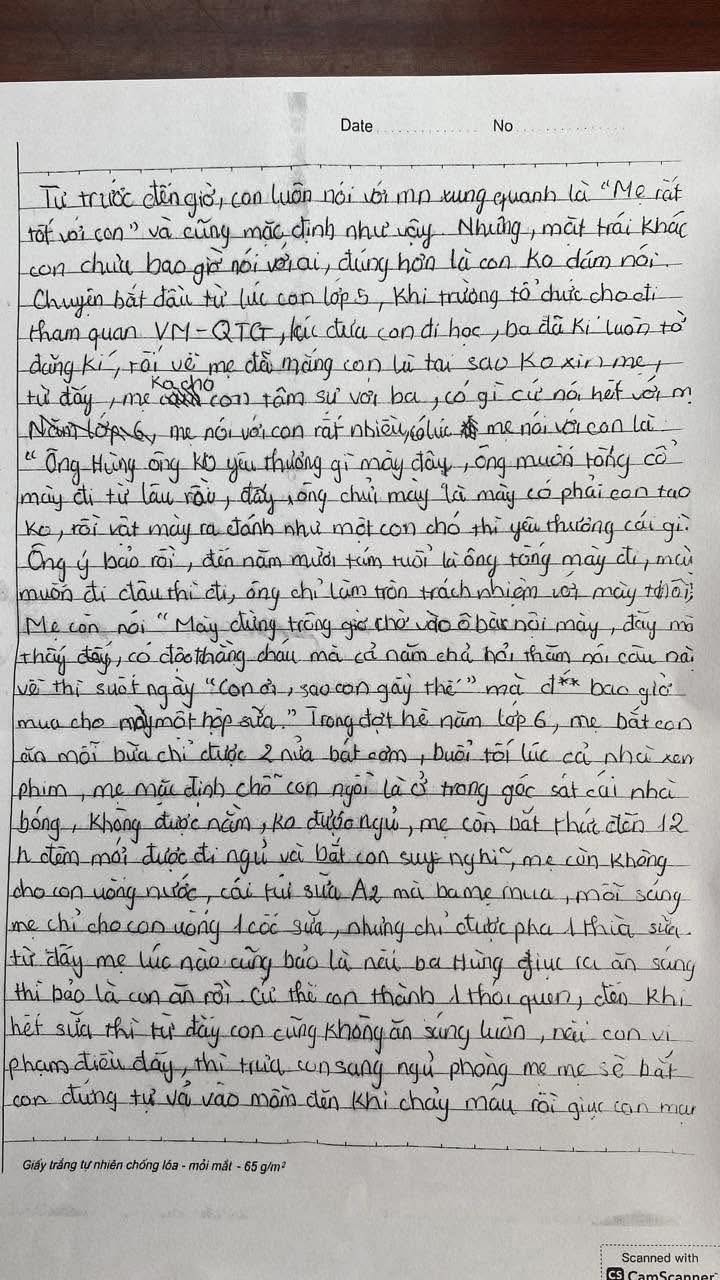 Date No
Từ trước đến giờ, con luôn nói với mn xung quanh là "Mẹ rất
tốt với con" và cũng mặc định như vậy. Nhưng, mặt trái khác
con chưa bao giờ nói với ai, đúng hơn là con ko dám nói.
Chuyện bắt đầu từ lúc con lớp 5, khi trường tổ chức cho đi
tham quan VM-QTG, lúc đưa con đi học, ba đã kí luôn tờ
đăng kí, rồi về mẹ đã mắng con là tại sao ko xin mẹ,
từ đấy, mẹ ko cho con tâm sự với ba, có gì cứ nói hết với m
Năm lớp 6, mẹ nói với con rất nhiều, có lúc mẹ nói với con là:
"Ông Hùng ông ko yêu thương gì mày đâu, ông muốn tống cổ
mày đi từ lâu rồi, đấy, ông chửi mày là mày có phải con tao
ko, rồi vật mày ra đánh như một con chó thì yêu thương cái gì?
Ông ý bảo rồi, đến năm mười tám tuổi là ông tống mày đi, mày
muốn đi đâu thì đi, ông chỉ làm tròn trách nhiệm với mày thôi;
Mẹ con nói "Mày đừng trông giờ chờ vào ô bà nội mày, đấy mà
thấy đấy, có độc thằng cháu mà cả năm chả hỏi thăm nói câu nào
về thì suốt ngày "con ơi, sao con gầy thế" mà đ** bao giờ
mua cho mày một hộp sữa." Trong đợt hè năm lớp 6, mẹ bắt con
ăn mỗi bữa chỉ được 2 nửa bát cơm, buổi tối lúc cả nhà xem
phim, mẹ mặc định chỗ con ngồi là ở trong góc sát cái nhà
bóng, không được nằm, ko được ngủ, mẹ còn bắt thức đến 12
h đêm mới được đi ngủ và bắt con suy nghĩ, mẹ còn không
cho con uống nước, cái túi sữa A2 mà ba mẹ mua, mỗi sáng
mẹ chỉ cho con uống 1 cốc sữa, nhưng chỉ được pha 1 thìa sữa.
từ đấy mẹ lúc nào cũng bảo là nếu ba Hùng giục ra ăn sáng
thì bảo là con ăn rồi. Cứ thế con thành 1 thói quen, đến khi
hết sữa thì từ đấy con cũng không ăn sáng luôn, nếu con vi
phạm điều đấy, thì trưa con sang ngủ phòng mẹ mẹ sẽ bắt
con đứng tự vả vào mồm đến khi chảy máu rồi giục con mau
Giấy trắng tự nhiên chống lóa - mỏi mắt - 65 g/m²
Scanned with
CS CamScanner